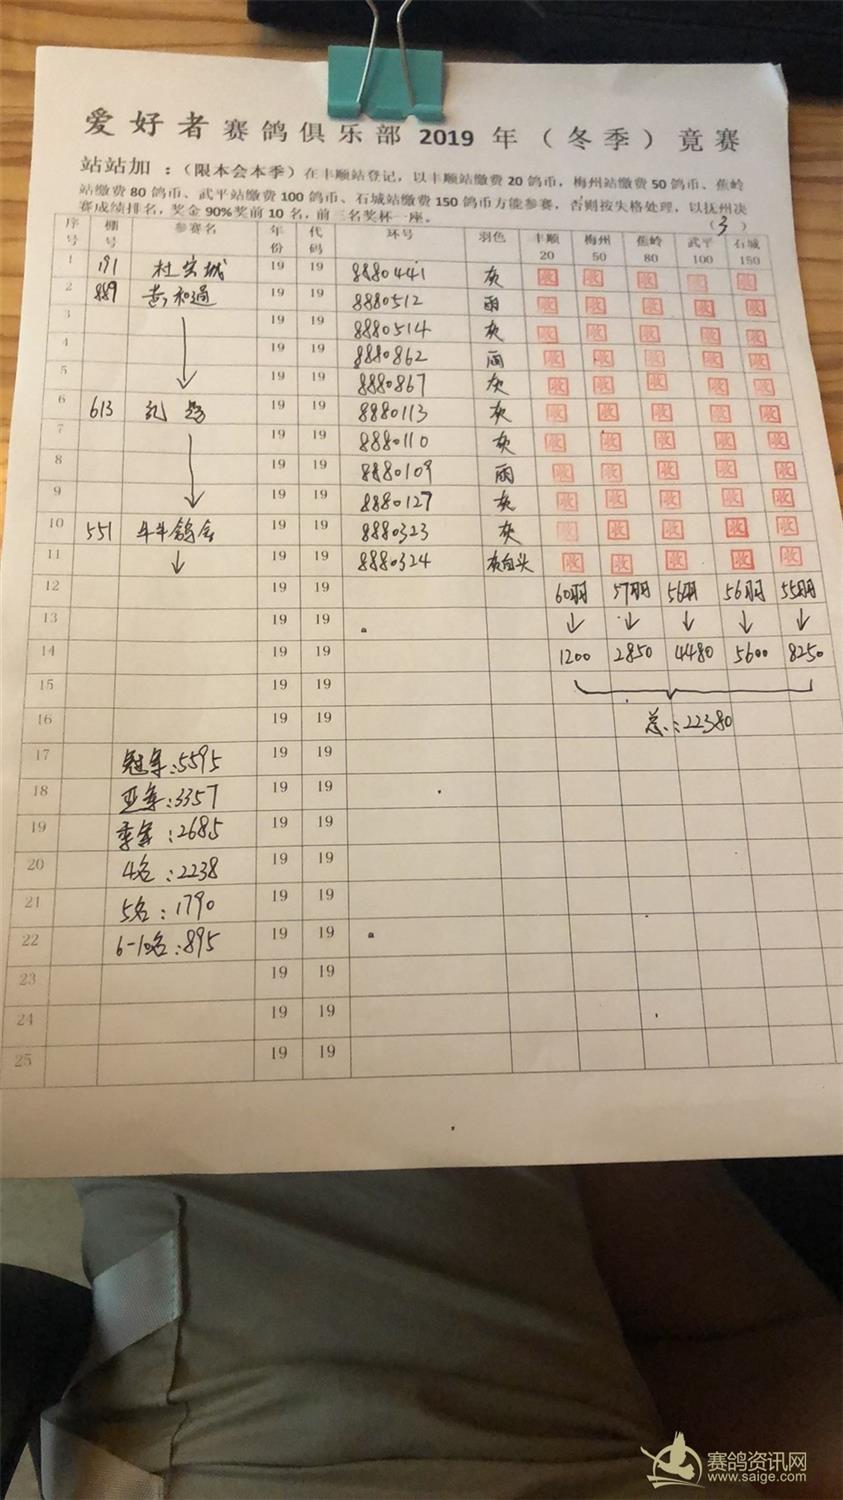 爱好者赛鸽俱乐部2019年（冬季）竟赛
站站加：（限本会本季）在丰顺站登记，以丰顺站缴费20鸽币，梅州站缴费50鸽币、蕉岭
站缴费80鸽币、武平站缴费100鸽币、石城站缴费150鸽币方能参赛，否则按失格处理，以抚州决
赛成绩排名，奖金90%奖前10名，前三名奖杯一座。
（3）
序号 棚号 参赛名 年份 代码 环号 羽色 丰顺20 梅州50 蕉岭80 武平100 石城150
1 191 杜 城 19 19 8880441 灰 收 收 收 收 收
2 889 黄和通 19 19 8880512 雨 收 收 收 收 收
3 19 19 8880514 灰 收 收 收 收 收
4 19 19 8880862 雨 收 收 收 收 收
5 19 19 8880867 灰 收 收 收 收 收
6 613 19 19 8880113 灰 收 收 收 收 收
7 19 19 8880110 灰 收 收 收 收 收
8 19 19 8880109 雨 收 收 收 收 收
9 19 19 8880127 灰 收 收 收 收 收
10 551 牛牛鸽舍 19 19 8880323 灰 收 收 收 收 收
11 ↓ 19 19 8880324 灰白头 收 收 收 收 收
12 19 19 60羽 57羽 56羽 56羽 55羽
13 19 19 ↓ ↓ ↓ ↓ ↓
14 19 19 1200 2850 4480 5600 8250
15 19 19
16 19 19 总：22380
17 冠军：5595 19 19
18 亚军：3357 19 19
19 季军：2685 19 19
20 4名：2238 19 19
21 5名：1790 19 19
22 6-10名：895 19 19
23 19 19
24 19 19
25 19 19
赛鸽资讯网
www.saige.com